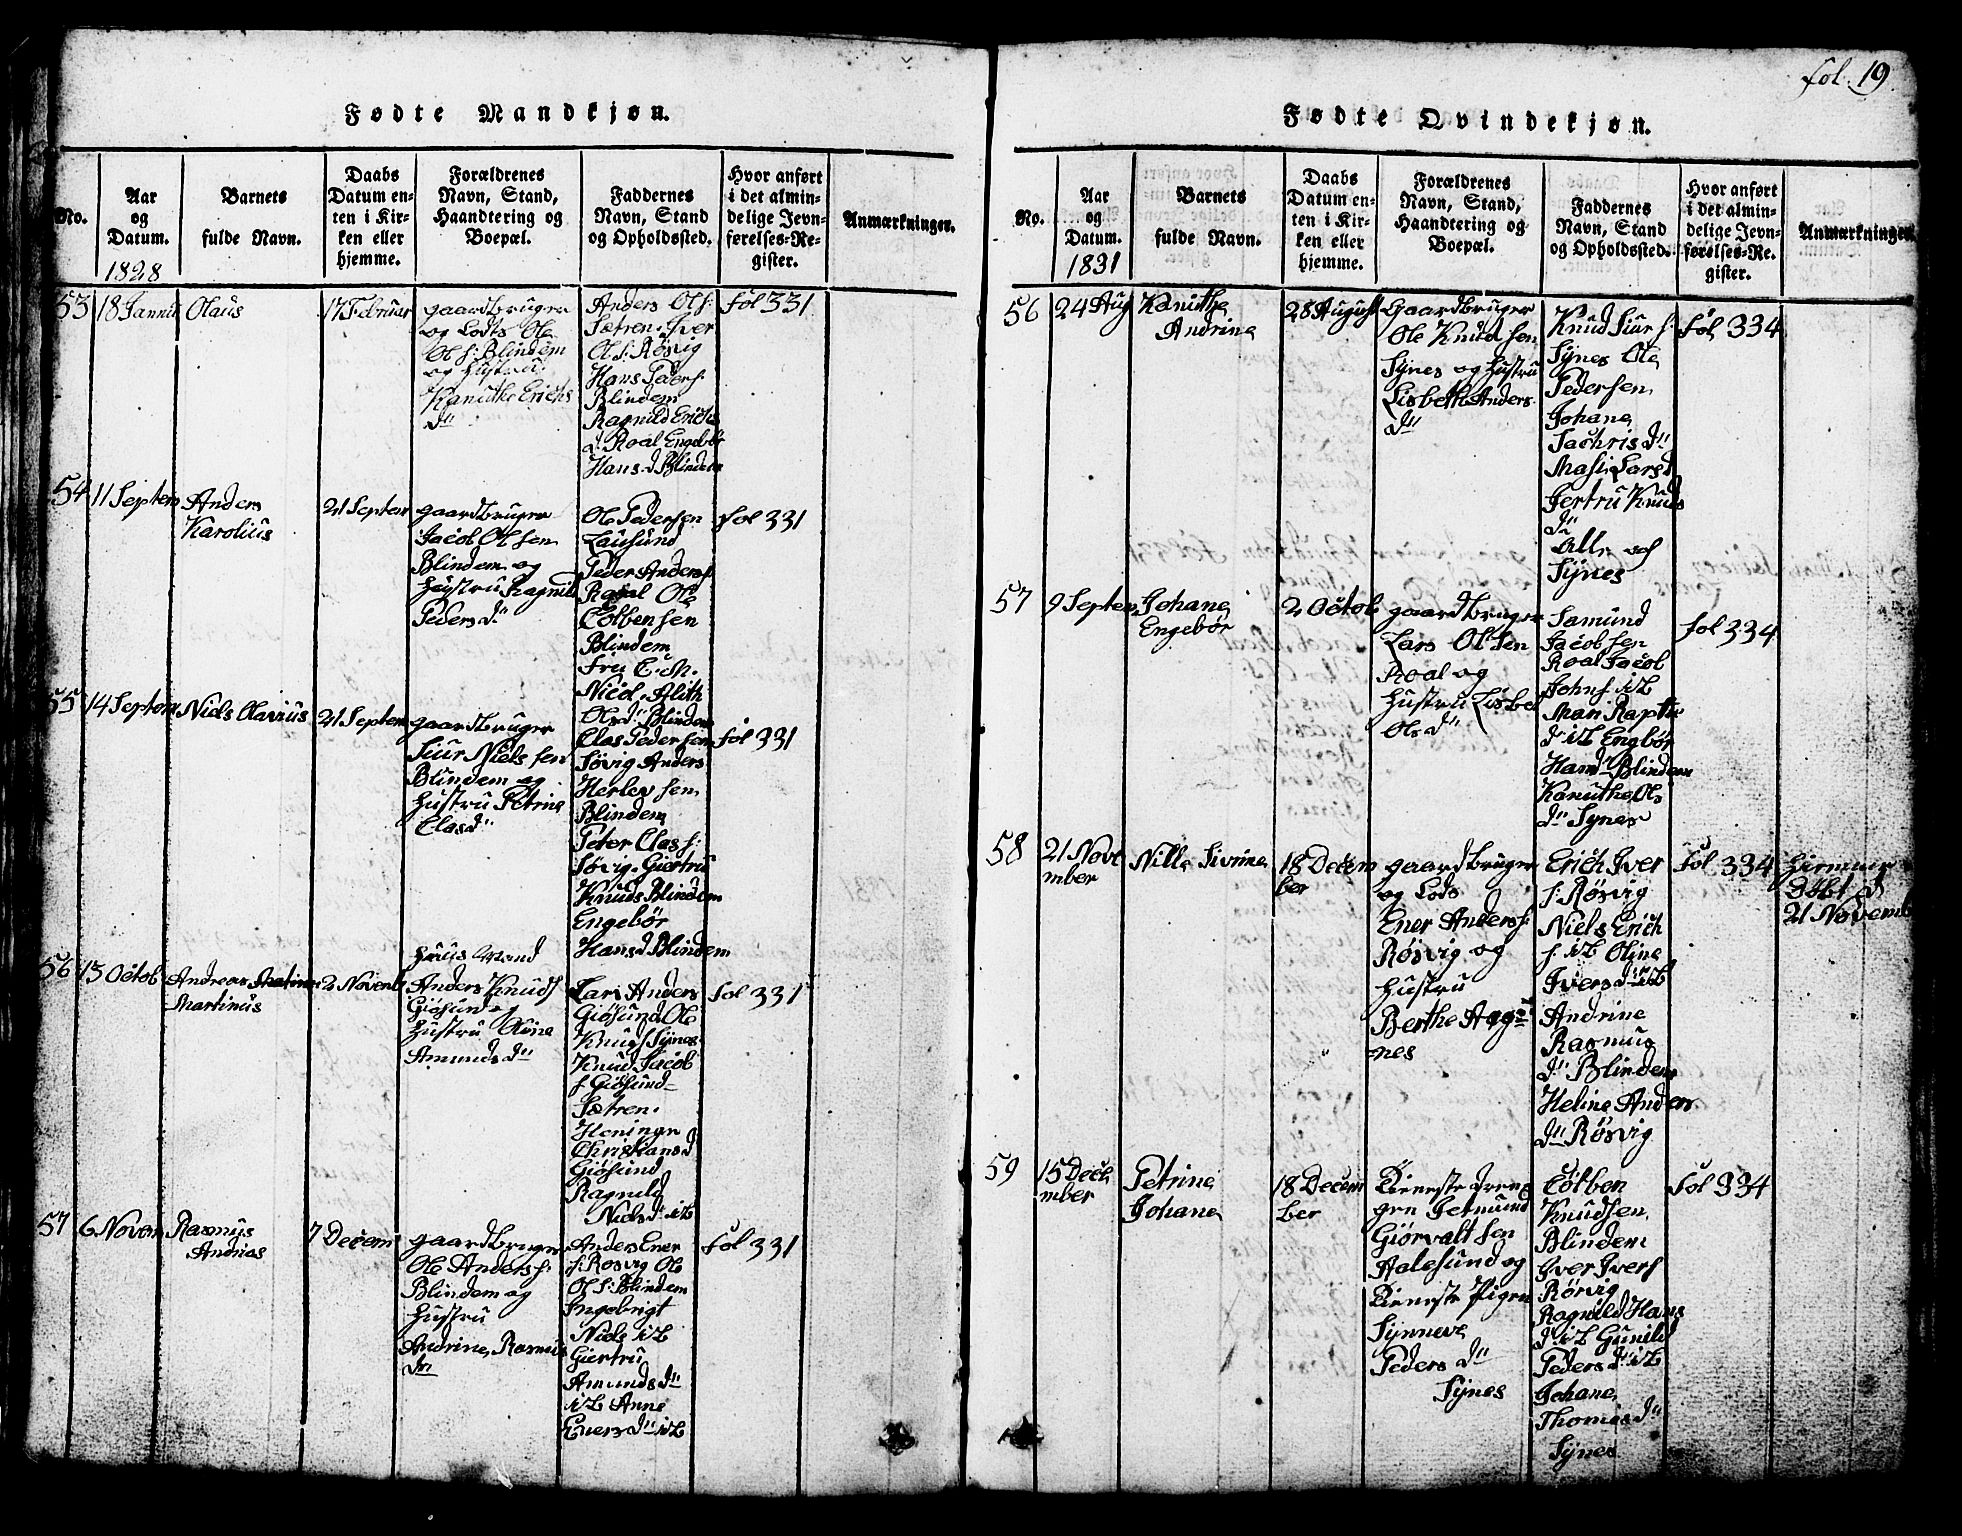 fol. 19.
Fødte Mandkjøn.
No.
Aar
og
Datum.
1828
Barnets
fulde Navn.
Daabs
Datum en-
ten i Kir-
ken eller
hjemme.
Forældrenes
Navn, Stand,
Haandtering og
Boepæl.
Faddernes
Navn, Stand
og Opholdssted.
Hvor anført
i det almin-
delige Jevn-
førelses-Re-
gister.
Anmærkninger.
53
18 Januü
Olaus
17 Februar
gaardbruger
og Lodts Ole
Ols: Blindem
og Hustrü
Kanuthe Erichs
dr
Anders Ols:
Sætren. Iver
Ols: Røsvig
Hans Peders:
Blindem
Ragnild Erichs
d. Roal Engebør
Hans d Blindem
föl 331
54
11 Septem
Anders
Karolius
21 Septem
gaardbruger
Jacob Olsen
Blindem og
Hustru Ragnild
Peders dr
Ole Pedersen
Lausund
Peder Anders:
Roal Ole
Colbensen
Blindem
Fru C. M.
Nicol. Alith
Olsdr Blindem
föl 331
55
14 Septem
Niels Olavius
21 Septem
gaardbruger
Siur Nielssen
Blindem og
Hustru Petrine
Clasdr
Clas Pedersen
Søvig Anders
Herlevsen
Blindem
Peter Class:
Søvig. Giertru
Knuds Blindem
Engebør
Hansd Blindem
föl 331
56
13 Octob
Andreas
Martinus
2 Novemb
Huus Mand
Anders Knuds
Giøsund og
Hustru Oline
Amunds dr
Lars Anders
Giøsund Ole
Knuds Synes
Knud Jacob
s Giøsund
Sætren.
Christiansd
Giøsund
Ragnild
Nielsdr ib
föl 331
57
6 Novem
Rasmus
Andreas
7 Decem
gaardbruger
Ole Anders:
Blindem og
Hustru
Andrine, Rasmus
dr
Anders Ener
s: Rosvig Ole
Ols: Blindem
Ingebrigt
Niels ib
Giertru
Amunds dr
ib Anne
Enersdr ib
föl 331
Fødte Qvindekjøn.
No.
Aar
og
Datum.
1831
Barnets
fulde Navn.
Daabs
Datum en-
ten i Kir-
ken eller
hjemme.
Forældrenes
Navn, Stand,
Haandtering og
Boepæl.
Faddernes
Navn, Stand
og Opholdssted.
Hvor anført
i det almin-
delige Jevn-
førelses-Re-
gister.
Anmærkninger.
56
24 Aug
Kanuthe
Andrine
28 August
Gaardbruger
Ole Knudsen
Synes og Hustru
Lisbeth Anders
dr
Knud Siurs:
Synes Ole
Pedersen
Johane
Sachris dr
Larsd
Gertru Knuds
dr
Alle af
Synes
föl 334
57
9 Septem
Johane
Engebør
2 Octob
gaardbruger
Lars Olsen
Roal og
Hustru Lisbet
Ols dr
Samund
Jacobsen
Roal Jacob
Johns ib
Mari Rapte
d ib Engbør
Hansd Blindem
Kanuthe Ols
dr Synes
föl 334
58
21 Nove
mber
Nille Sivrine
18 Decem
ber
gaardbruger
og Lods
Ener Anders:
Røsvig og
Hustru
Berthe Agg
nes
Erich Iver
s: Røsvig
Niels Erich
s ib Oline
Iversdr ib
Andrine
Rasmus
dr Blindem
Heline Anders
dr Røsvig
föl 334
hiemme
døbt d
21 Novemb
59
15 Dece
mber
Petrine
Johane
18 Decem
ber
Tieneste dren
gen
Giørvaltsen
Aalesund og
Tieneste Pigen
Synneve
Peders dr
Synes
Colben
Knudsen
Blindem
Iver Ivers
Rørvig
Ragnild Hans
d ib Gunild
Pedersdr ib
Johane
Thomasdr
Synes
föl 334